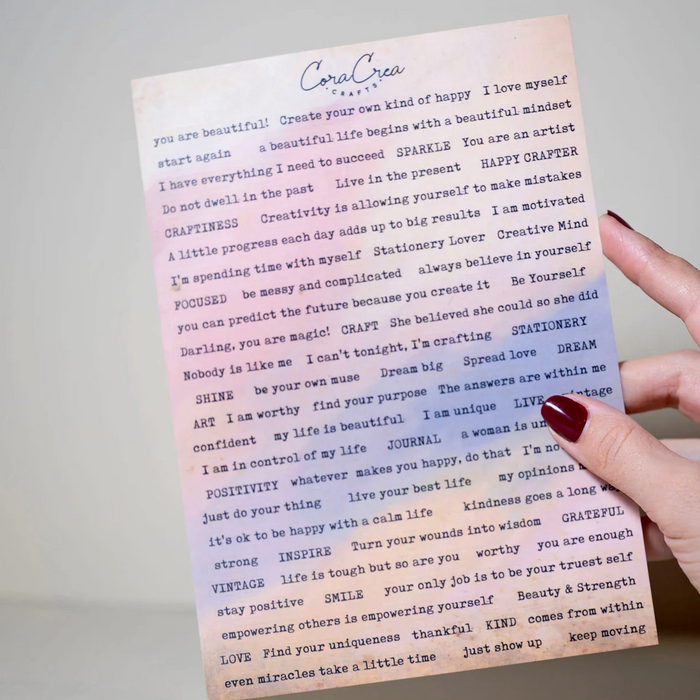 CoraCrea
CRAFTS
you are beautiful! Create your own kind of happy I love myself
start again a beautiful life begins with a beautiful mindset
I have everything I need to succeed SPARKLE You are an artist
Do not dwell in the past Live in the present HAPPY CRAFTER
CRAFTINESS Creativity is allowing yourself to make mistakes
A little progress each day adds up to big results I am motivated
I'm spending time with myself Stationery Lover Creative Mind
FOCUSED be messy and complicated always believe in yourself
you can predict the future because you create it Be Yourself
Darling, you are magic! CRAFT She believed she could so she did
Nobody is like me I can't tonight, I'm crafting STATIONERY
SHINE be your own muse Dream big Spread love DREAM
ART I am worthy find your purpose The answers are within me
confident my life is beautiful I am unique LIVE vintage
I am in control of my life JOURNAL a woman is
POSITIVITY whatever makes you happy, do that I'm
just do your thing live your best life my opinions
it's ok to be happy with a calm life kindness goes a long
strong INSPIRE Turn your wounds into wisdom GRATEFUL
VINTAGE life is tough but so are you worthy you are enough
stay positive SMILE your only job is to be your truest self
empowering others is empowering yourself Beauty & Strength
LOVE Find your uniqueness thankful KIND comes from within
even miracles take a little time just show up keep moving